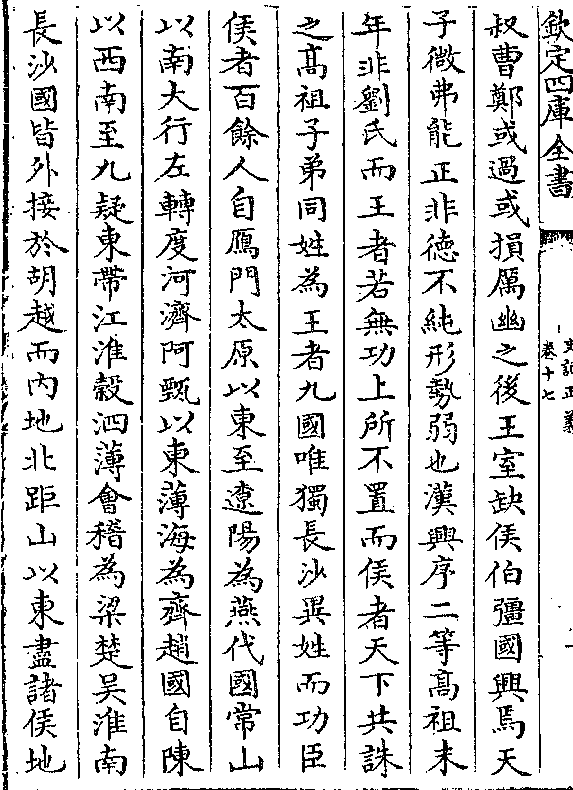 欽定四庫全書
史記正義
卷十七
一
叔曹鄭或過或損厲幽之後王室缺侯伯彊國興焉天
子微弗能正非德不純形勢弱也漢興序二等高祖末
年非劉氏而王者若無功上所不置而侯者天下共誅
之高祖子弟同姓為王者九國唯獨長沙異姓而功臣
侯者百餘人自鴈門太原以東至遼陽為燕代國常山
以南大行左轉度河濟阿甄以東薄海為齊趙國自陳
以西南至九疑東帶江淮穀泗薄會稽為梁楚吳淮南
長沙國皆外接於胡越而內地北距山以東盡諸侯地